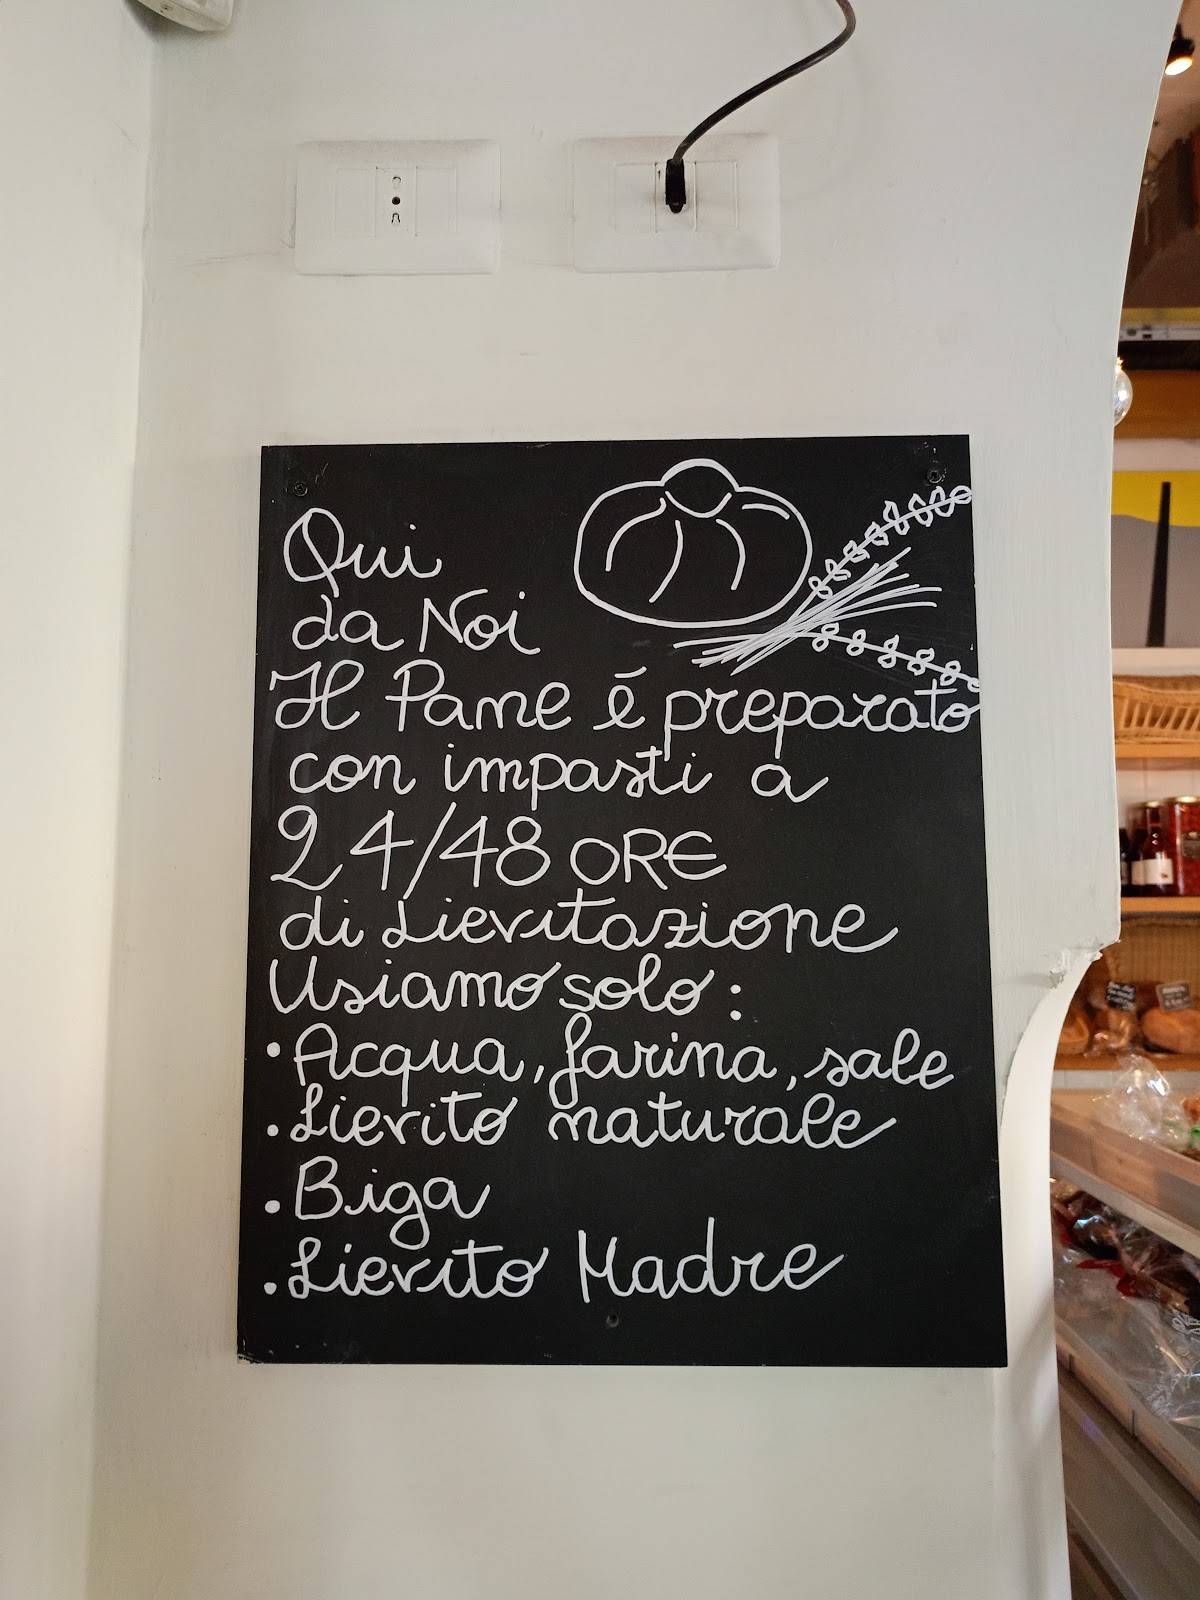 Qui
da Noi
Il Pane é preparato
con impasti a
24/48 ORE
di Lievitazione
Usiamo solo:
• Acqua, farina, sale
• Lievito naturale
• Biga
• Lievito Madre